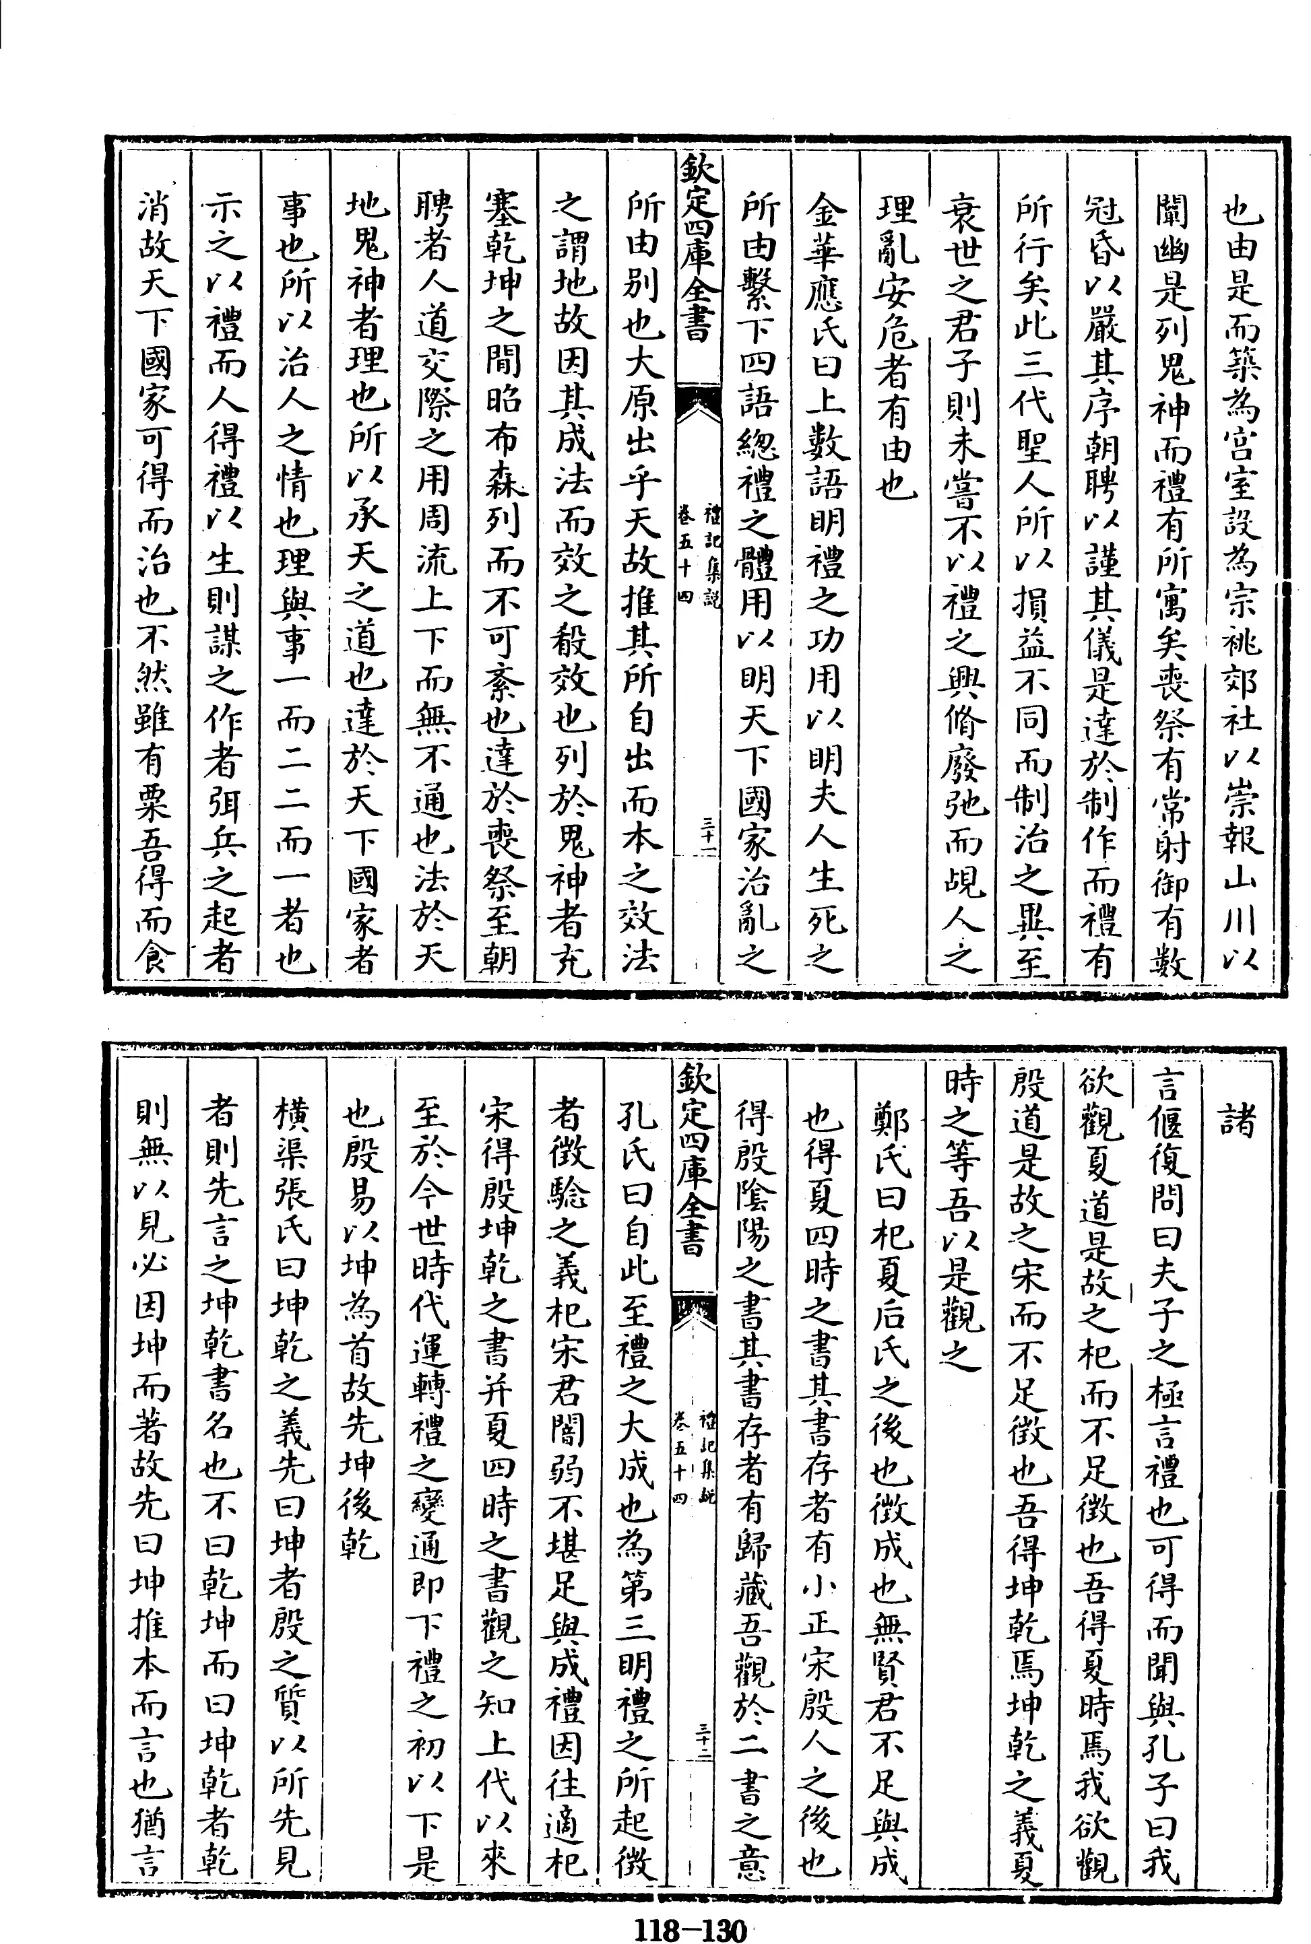 也由是而築為宫室設為宗祧郊社以崇報山川以
闡幽是列鬼神而禮有所寓矣喪祭有常射御有數
冠昏以嚴其序朝聘以謹其儀是達於制作而禮有
所行矣此三代聖人所以損益不同而制治之異至
衰世之君子則未嘗不以禮之興脩廢弛而覘人之
理亂安危者有由也
金華應氏曰上數語明禮之功用以明夫人生死之
所由繫下四語總禮之體用以明天下國家治亂之
欽定四庫全書
禮記集説
卷五十四
三十一
所由别也大原出乎天故推其所自出而本之效法
之謂地故因其成法而效之殽效也列於鬼神者充
塞乾坤之間昭布森列而不可紊也達於喪祭至朝
聘者人道交際之用周流上下而無不通也法於天
地鬼神者理也所以承天之道也達於天下國家者
事也所以治人之情也理與事一而二二而一者也
示之以禮而人得禮以生則謀之作者弭兵之起者
消故天下國家可得而治也不然雖有粟吾得而食
諸
言偃復問曰夫子之極言禮也可得而聞與孔子曰我
欲觀夏道是故之杞而不足徵也吾得夏時焉我欲觀
殷道是故之宋而不足徵也吾得坤乾焉坤乾之義夏
時之等吾以是觀之
鄭氏曰杞夏后氏之後也徵成也無賢君不足與成
也得夏四時之書其書存者有小正宋殷人之後也
得殷陰陽之書其書存者有歸藏吾觀於二書之意
欽定四庫全書
禮記集説
卷五十四
三十二
孔氏曰自此至禮之大成也為第三明禮之所起徵
者徵驗之義杞宋君闇弱不堪足與成禮因往適杞
宋得殷坤乾之書并夏四時之書觀之知上代以來
至於今世時代運轉禮之變通即下禮之初以下是
也殷易以坤為首故先坤後乾
橫渠張氏曰坤乾之義先曰坤者殷之質以所先見
者則先言之坤乾書名也不曰乾坤而曰坤乾者乾
則無以見必因坤而著故先曰坤推本而言也猶言
118-130